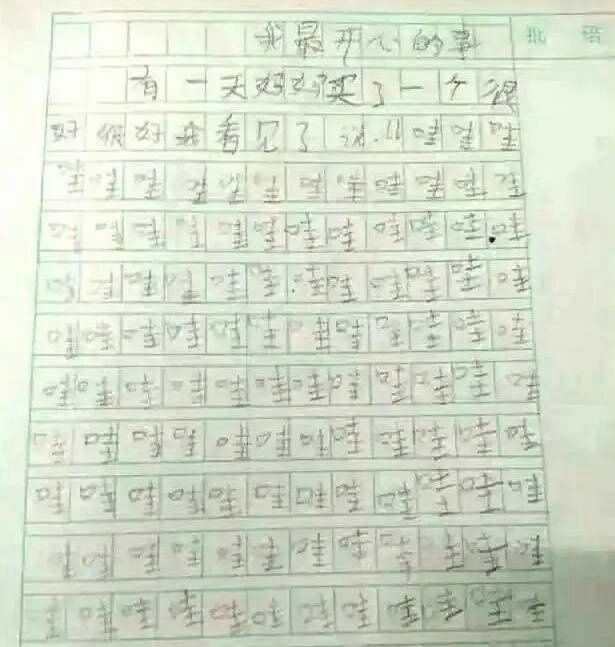 我最开心的事
批语
有一天妈妈买了一个很
好很好我看见了说:“哇哇哇
哇哇哇哇哇哇哇哇哇哇哇哇
哇哇哇哇哇哇哇哇哇哇哇哇
哇哇哇哇哇哇哇哇哇哇哇哇
哇哇哇哇哇哇哇哇哇哇哇哇
哇哇哇哇哇哇哇哇哇哇哇哇
哇哇哇哇哇哇哇哇哇哇哇哇
哇哇哇哇哇哇哇哇哇哇哇哇
哇哇哇哇哇哇哇哇哇哇哇哇
哇哇哇哇哇哇哇哇哇哇哇哇